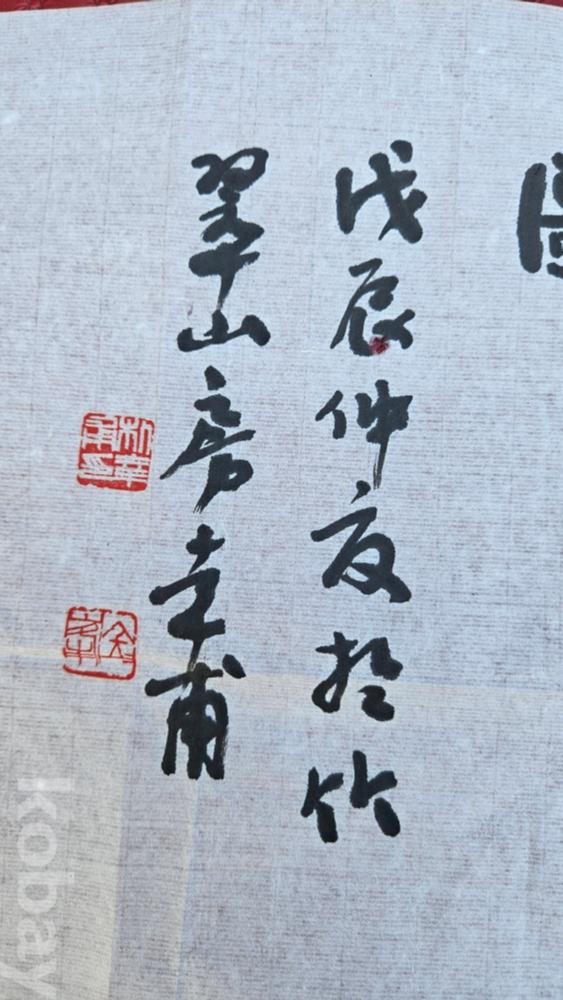 戊辰仲夏於竹
翠山房圭甫
kobay